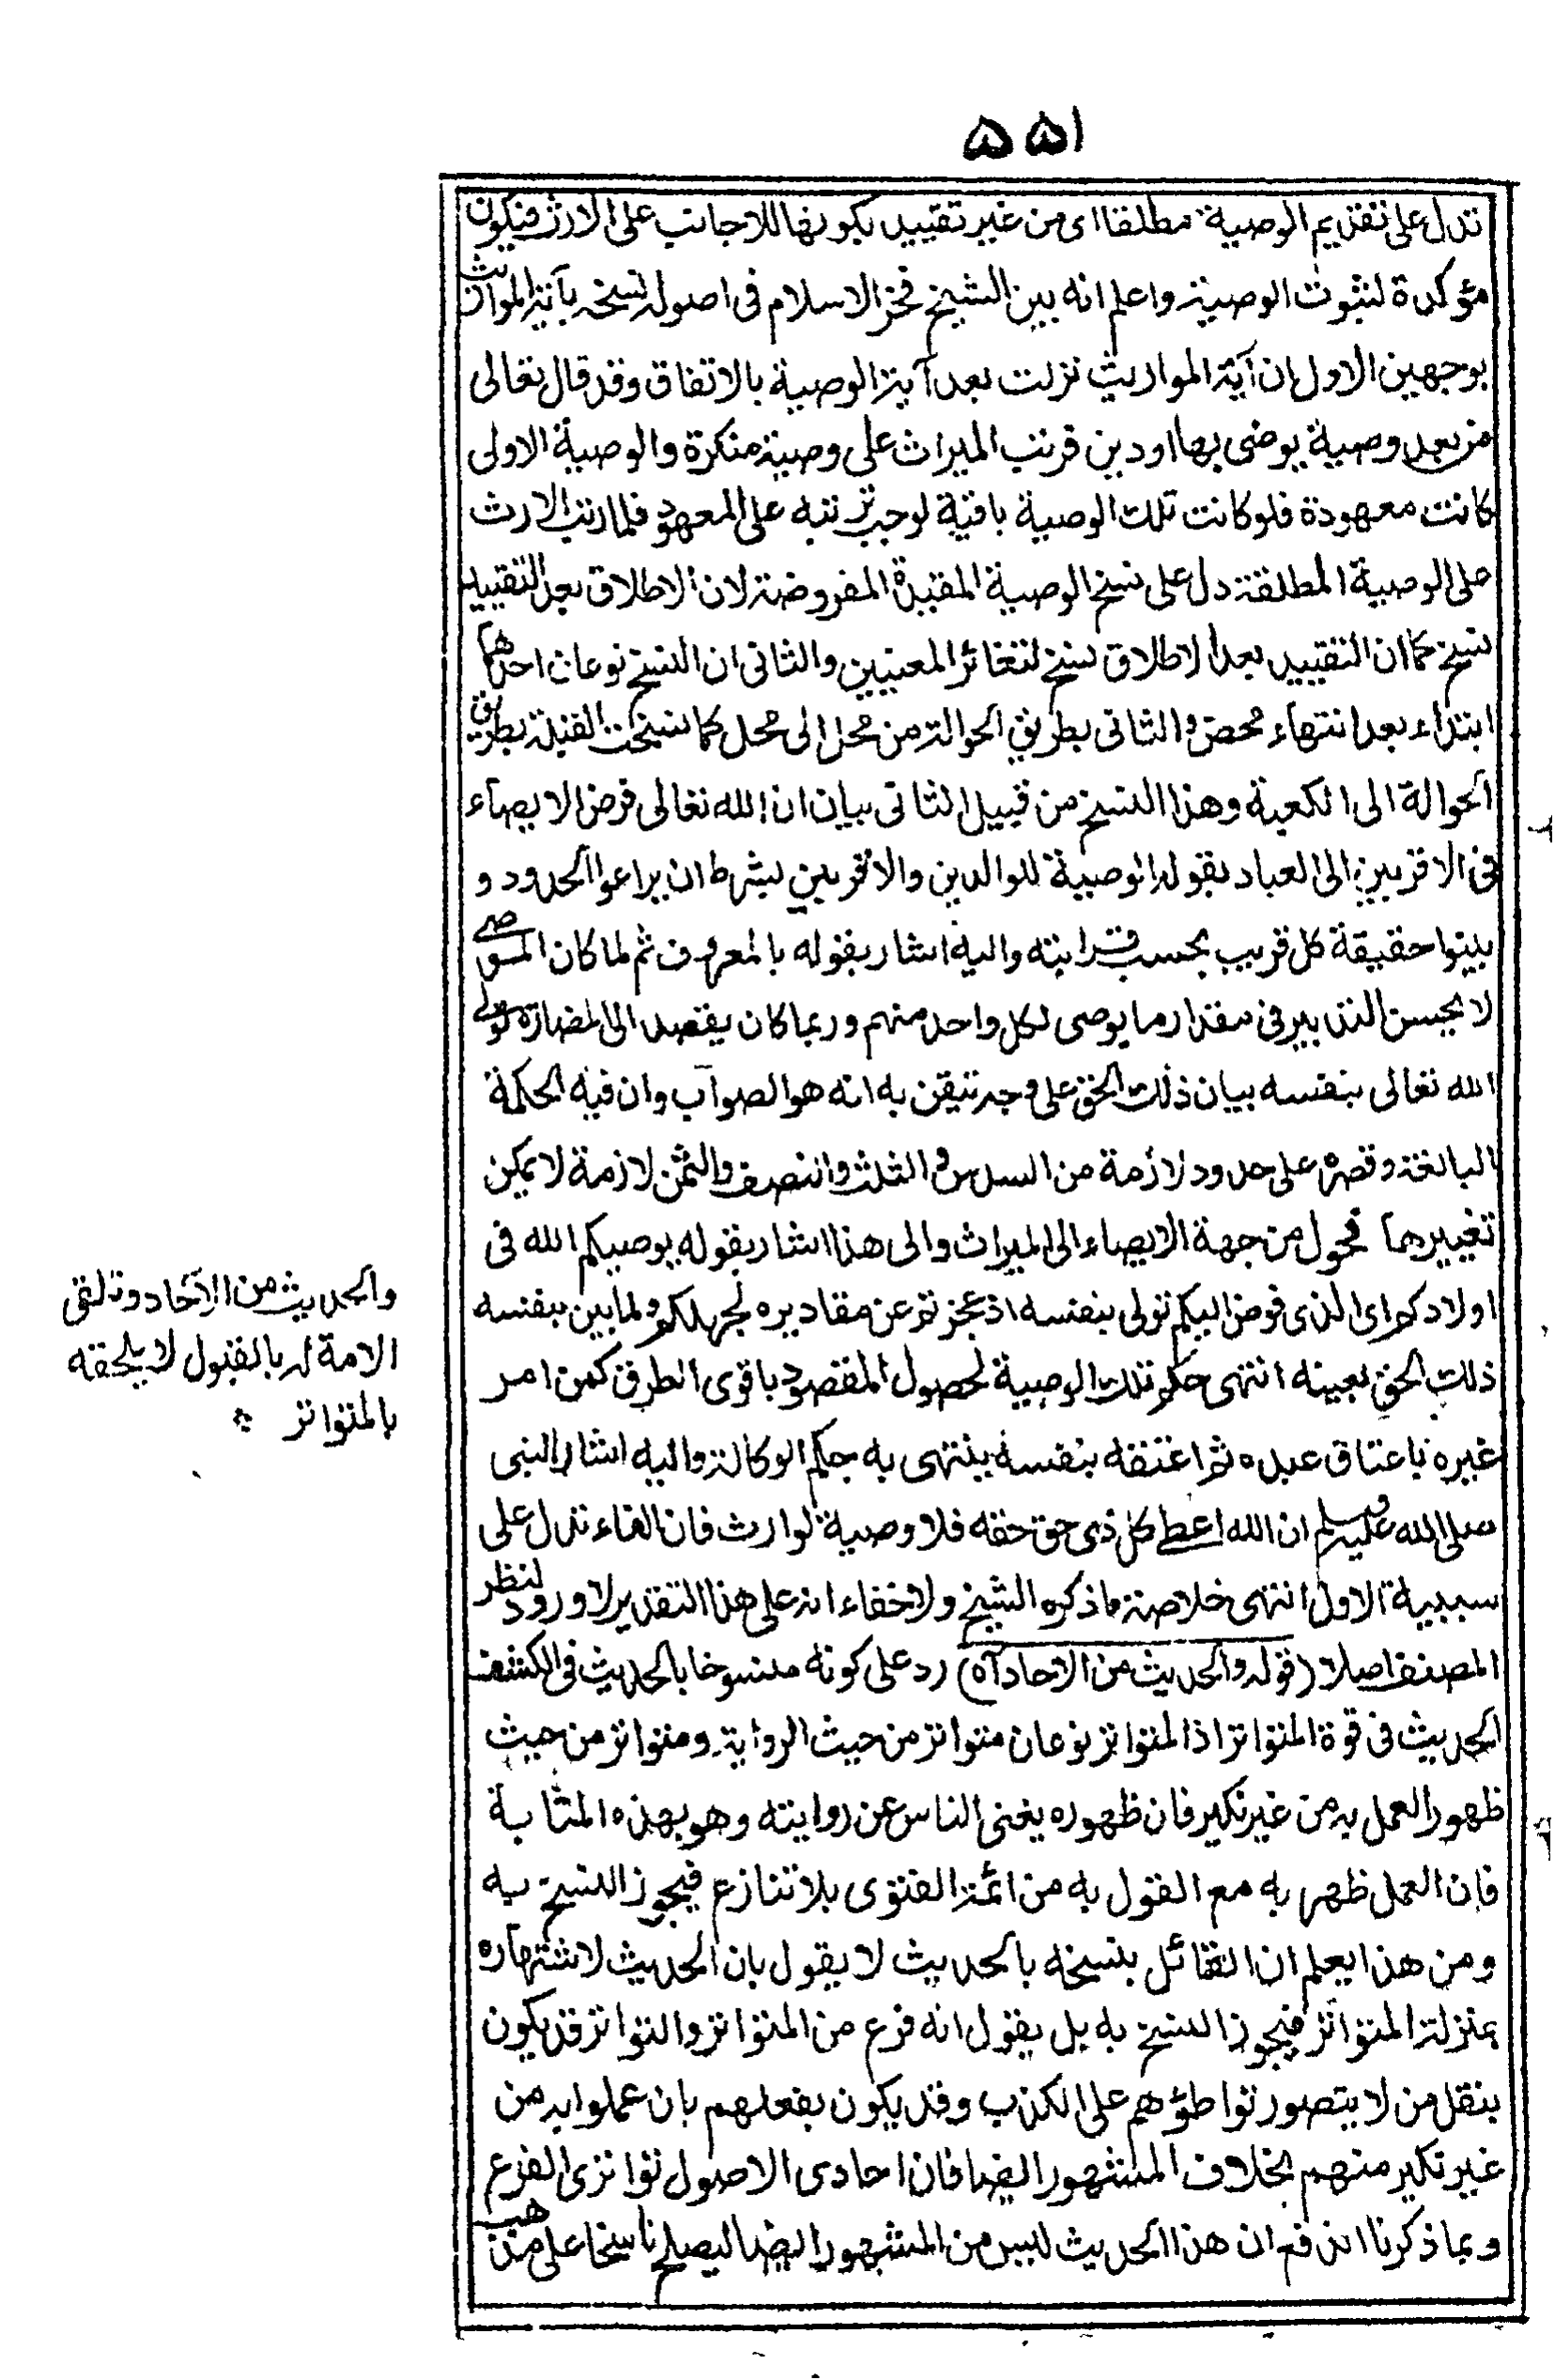 ٥٥١
تدل على تقديم الوصية مطلقا اى من غير تقييد بكونها للاجانب على الارث فيكون
مؤكدة لثبوت الوصية واعلم انه بين الشيخ فخر الاسلام فى اصوله نسخه بآية المواريث
بوجهين الاول ان آية المواريث نزلت بعد آية الوصية بالاتفاق وقد قال تعالى
من بعد وصية يوصى بها او دين فرتب الميراث على وصية منكرة والوصية الاولى
كانت معهودة فلو كانت تلك الوصية باقية لوجب ترتبه على المعهود فلما رتب الارث
على الوصية المطلقة دل على نسخ الوصية المقيدة المفروضة لان الاطلاق بعد التقييد
نسخ كما ان التقييد بعد الاطلاق نسخ لتغائر المعنيين والثانى ان النسخ نوعان احدهما
ابتداء بعد انتهاء محض والثانى بطريق الحوالة من محل الى محل كما نسخت القبلة بطريق
الحوالة الى الكعبة وهذا النسخ من قبيل الثانى بيان ان الله تعالى فرض الايصاء
فى الاقربين الى العباد بقوله الوصية للوالدين والاقربين بشرط ان يراعوا الحدود و
يبينوا حقيقة كل قريب بحسب قرابته واليه اشار بقوله بالمعروف ثم لما كان الموصى
لا يحسن التدبير فى مقدار ما يوصى لكل واحد منهم وربما كان يقصد الى المضارة تولى
الله تعالى بنفسه بيان ذلك الحق على وجه تيقن به انه هو الصواب وان فيه الحكمة
البالغة وقصره على حدود لازمة من السدس والثلث والنصف والثمن لازمة لا يمكن
تغييرها فحول من جهة الايصاء الى الميراث والى هذا اشار بقوله يوصيكم الله فى
اولادكم اى الذى فوض اليكم تولى بنفسه اذ عجزتم عن مقاديره لجهلكم ولما بين بنفسه
ذلك الحق بعينه انتهى حكم تلك الوصية لحصول المقصود باقوى الطرق كمن امر
غيره باعتاق عبده ثم اعتقه بنفسه ينتهى به حكم الوكالة واليه اشار النبى
صلى الله عليه وسلم ان الله اعطى كل ذى حق حقه فلا وصية لوارث فان الفاء تدل على
سببية الاول انتهى خلاصة ما ذكره الشيخ ولا خفاء انه على هذا التقدير لا ورود لنظر
المصنف اصلا (قوله والحديث من الاحاد آه) رد على كونه منسوخا بالحديث فى الكشف
الحديث فى قوة المتواتر اذ المتواتر نوعان متواتر من حيث الرواية ومتواتر من حيث
ظهور العمل به من غير نكير فان ظهوره يغنى الناس عن روايته وهو بهذه المثابة
فان العمل ظهر به مع القول به من ائمة الفتوى بلا تنازع فيجوز النسخ به
ومن هذا يعلم ان القائل بنسخه بالحديث لا يقول بان الحديث لاشتهاره
بمنزلة المتواتر فيجوز النسخ به بل يقول انه فرع من المتواتر والتواتر قد يكون
بنقل من لا يتصور تواطؤهم على الكذب وقد يكون بفعلهم بان عملوا به من
غير نكير منهم بخلاف المشهور ايضا فان احادى الاصول تواترى الفرع
وبما ذكرنا اندفع ان هذا الحديث ليس من المشهور ايضا ليصلح ناسخا على مذهب
والحديث من الآحاد وتلقى
الامة له بالقبول لا يلحقه
بالمتواتر